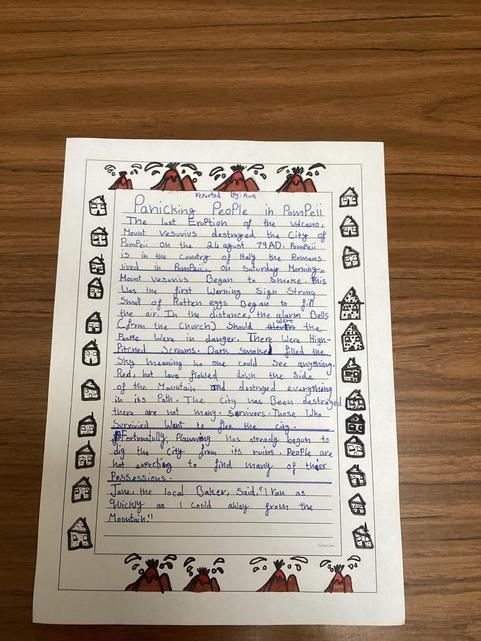 reported By: Ava
Panicking People in Pompeii
The last Eruption of the volcano,
Mount Vesuvius destroyed the City of
Pompeii on the 24 agust 79AD. Pompeii
is in the country of Italy the Romans
lived in Pompeii. on Saturday Morning,
Mount Vesuvius Began to smoke. this
was the first Warning Sign Strong
Smell of Rotten eggs Began to fill
the air. In the distance, the alarm Bells
(from the Church) Should alert the
People Were in danger. There Were High-
Pitched Screams. Dark Smoke filled the
Sky meaning no one could See anything.
Red, hot lava flowed down the Side
of the Mountain and destroyed everything
in its Path. The City has Been destroyed
there are not many survivors. Those Who
Survived Want to flee the city.
Fortunatly, Planning has already begun to
dig the City from its ruins. People are
not expecting to find many of their
Possessions.
Jane, the local Baker, Said, "I ran as
Quickly as I could away from the
Mountain!"